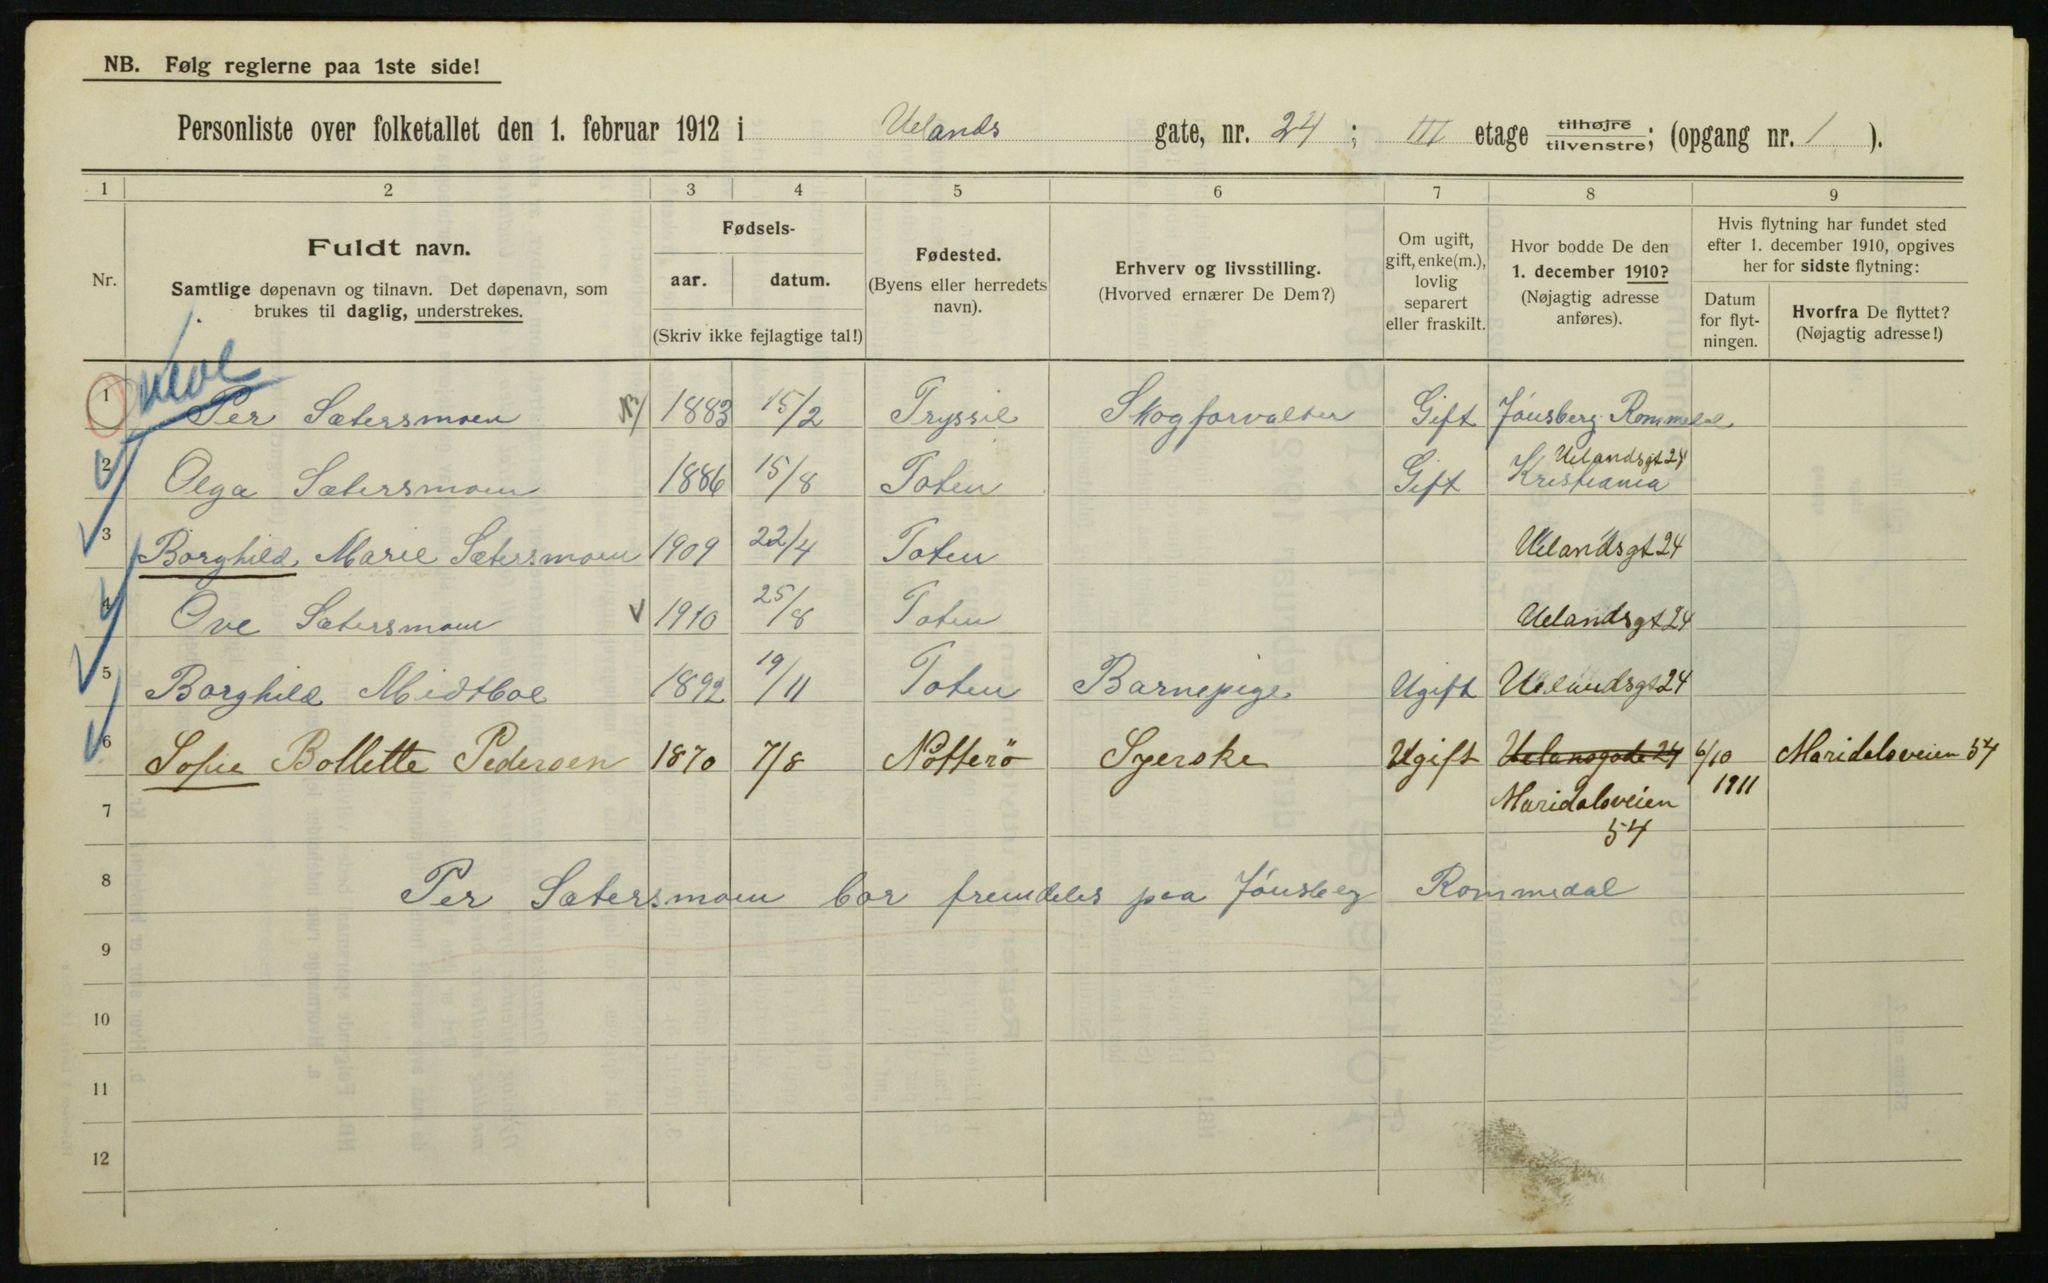 NB. Følg reglerne paa 1ste side!
Personliste over folketallet den 1. februar 1912 i Uelands gate, nr. 24 ; III etage tilhøjre tilvenstre; (opgang nr. 1 ).
1 2 3 4 5 6 7 8 9
Nr.
Fuldt navn.
Samtlige døpenavn og tilnavn. Det døpenavn, som
brukes til daglig, understrekes.
Fødsels-
aar. datum.
(Skriv ikke fejlagtige tal!)
Fødested.
(Byens eller herredets
navn).
Erhverv og livsstilling.
(Hvorved ernærer De Dem?)
Om ugift,
gift, enke(m.),
lovlig
separert
eller fraskilt.
Hvor bodde De den
1. december 1910?
(Nøjagtig adresse
anføres).
Hvis flytning har fundet sted
efter 1. december 1910, opgives
her for sidste flytning:
Datum
for flyt-
ningen.
Hvorfra De flyttet?
(Nøjagtig adresse!)
1 Per Sætersmoen 1883 15/2 Tryssil Skogforvalter Gift Jónsberg Rommedal
Uelandsgt 24
2 Olga Sætersmoen 1886 15/8 Toten Gift Kristiania
3 Borghild Marie Sætersmoen 1909 22/4 Toten Uelandsgt 24
4 Ove Sætersmoen 1910 25/8 Toten Uelandsgt 24
5 Borghild Midtbøl 1892 19/11 Toten Barnepige Ugift Uelandsgt 24
6 Sofie Bollette Pedersen 1870 7/8 Nötterö Syerske Ugift Uelansgade 24 6/10 Maridalsveien 54
1911
7 Maridalsveien
54
8 Per Sætersmoen bor fremdeles paa Jónsberg Rommedal
9
10
11
12